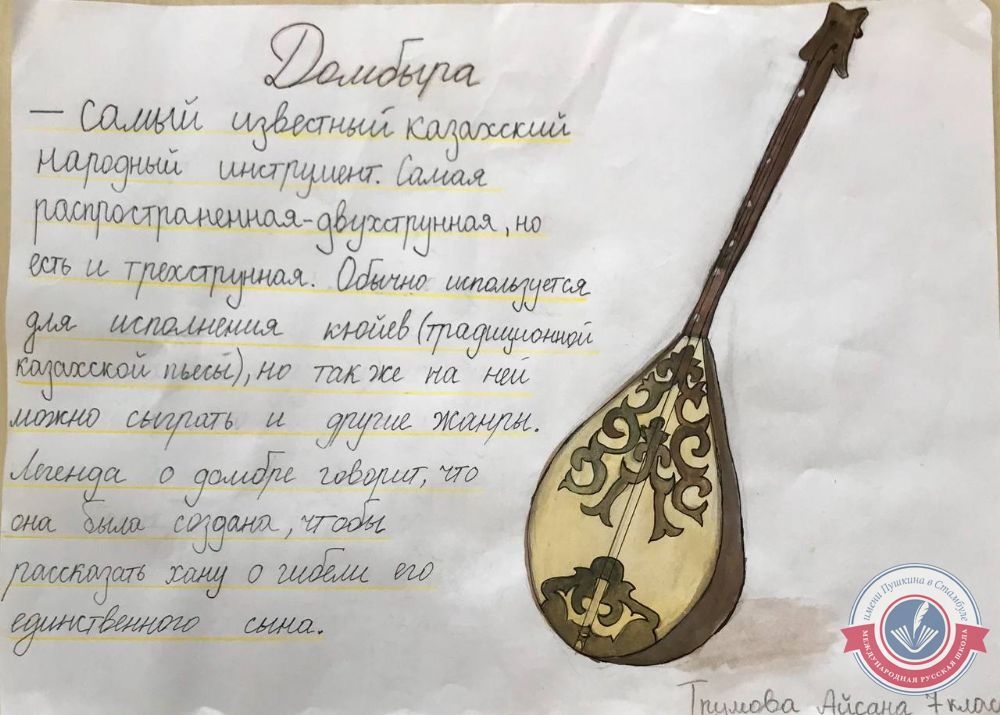 Домбыра
— Самый известный казахский
народный инструмент. Самая
распространенная-двухструнная, но
есть и трехструнная. Обычно используется
для исполнения кюйев (традиционной
казахской пьесы), но так же на ней
можно сыграть и другие жанры.
Легенда о домбре говорит, что
она была создана, чтобы
рассказать хану о гибели его
единственного сына.
Айсана 7 клас
имени Пушкина в Стамбуле
МЕЖДУНАРОДНАЯ РУССКАЯ ШКОЛА